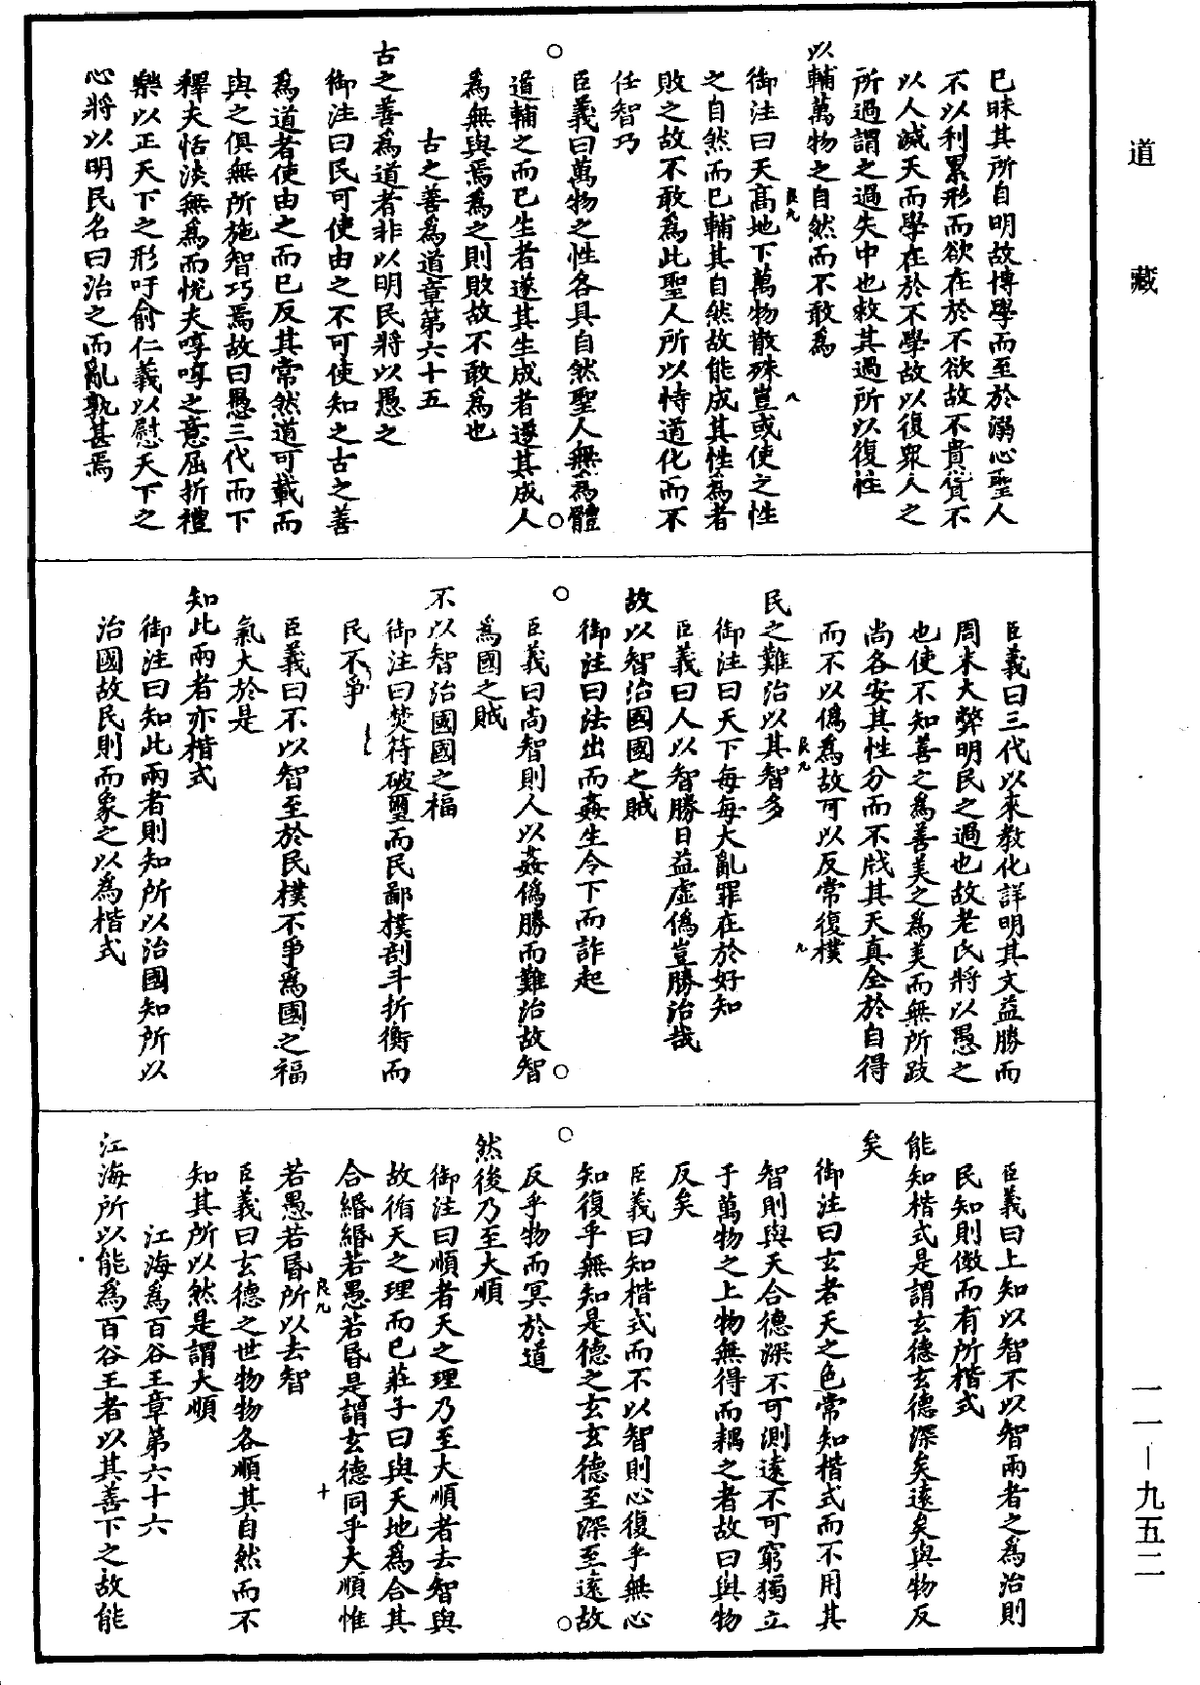 道藏
已昧其所自明故博學而至於溺心聖人
不以利累形而欲在於不欲故不貴貨不
以人滅天而學在於不學故以復眾人之
所過謂之過失中也救其過所以復性
以輔萬物之自然而不敢為
良九
八
御注曰天高地下萬物散殊豈或使之性
之自然而已輔其自然故能成其性為者
敗之故不敢為此聖人所以恃道化而不
任智巧
臣義曰萬物之性各具自然聖人無為體
道輔之而已生者遂其生成者遂其成人
為無與焉為之則敗故不敢為也
古之善為道章第六十五
古之善為道者非以明民將以愚之
御注曰民可使由之不可使知之古之善
為道者使由之而已反其常然道可載而
與之俱無所施智巧焉故曰愚三代而下
釋夫恬淡無為而悅夫啍啍之意屈折禮
樂以正天下之形吁俞仁義以慰天下之
心將以明民名曰治之而亂孰甚焉
臣義曰三代以來教化詳明其文益勝而
周末大弊明民之過也故老氏將以愚之
也使不知善之為善美之為美而無所跂
尚各安其性分而不戕其天真全於自得
而不以偽為故可以反常復樸
良九
九
民之難治以其智多
御注曰天下每每大亂罪在於好知
臣義曰人以智勝日益虛偽豈勝治哉
故以智治國國之賊
御注曰法出而姦生令下而詐起
臣義曰尚智則人以姦偽勝而難治故智
為國之賊
不以智治國國之福
御注曰焚符破璽而民鄙樸剖斗折衡而
民不爭
臣義曰不以智至於民樸不爭為國之福
氣大於是
知此兩者亦楷式
御注曰知此兩者則知所以治國知所以
治國故民則而象之以為楷式
臣義曰上知以智不以智兩者之為治則
民知則儆而有所楷式
能知楷式是謂玄德玄德深矣遠矣與物反
矣
御注曰玄者天之色常知楷式而不用其
智則與天合德深不可測遠不可窮獨立
于萬物之上物無得而耦之者故曰與物
反矣
臣義曰知楷式而不以智則心復乎無心
知復乎無知是德之玄玄德至深至遠故
反乎物而冥於道
然後乃至大順
御注曰順者天之理乃至大順者去智與
故循天之理而已莊子曰與天地為合其
合緡緡若愚若昏是謂玄德同乎大順惟
良九
十
若愚若昏所以去智
臣義曰玄德之世物物各順其自然而不
知其所以然是謂大順
江海為百谷王章第六十六
江海所以能為百谷王者以其善下之故能
一一－九五二